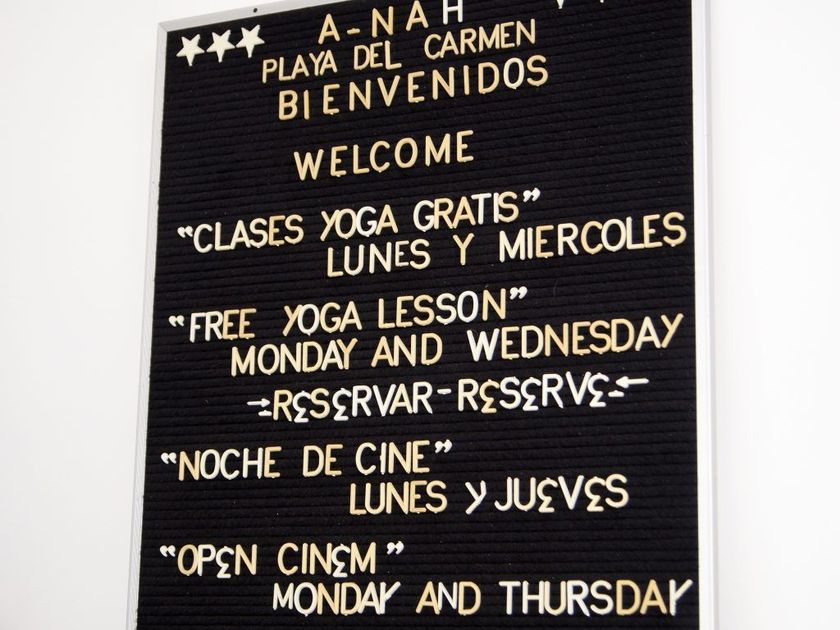 A-NAH
PLAYA DEL CARMEN
BIENVENIDOS
WELCOME
"CLASES YOGA GRATIS"
LUNES Y MIERCOLES
"FREE YOGA LESSON"
MONDAY AND WEDNESDAY
RESERVAR-RESERVE
"NOCHE DE CINE"
LUNES Y JUEVES
"OPEN CINEM"
MONDAY AND THURSDAY